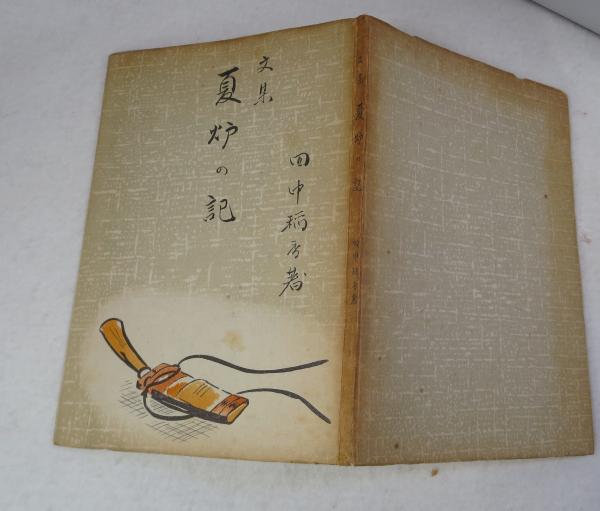 文集
夏炉の記
田中稲香著
文集 夏炉の記 田中稲香著